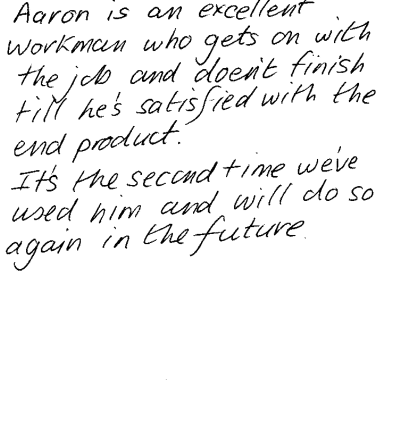 Aaron is an excellent
workman who gets on with
the job and doesn't finish
till he's satisfied with the
end product.
It's the second time we've
used him and will do so
again in the future.